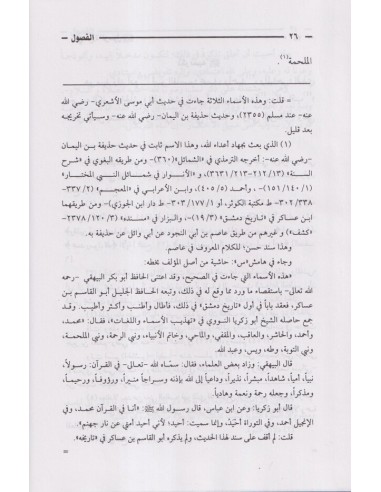 ٢٦ الفصول
الملحمة(١).
= قلت: وهذه الأسماء الثلاثة جاءت في حديث أبي موسى الأشعري- رضي الله
عنه- عند مسلم (٢٣٥٥)، وحديث حذيفة بن اليمان- رضي الله عنه- وسيأتي تخريجه
بعد قليل.
(١) الذي بعث بجهاد أعداء الله، وهذا الاسم ثابت في حديث حذيفة بن اليمان
-رضي الله عنه-: أخرجه الترمذي في «الشمائل» (٣٦٠)- ومن طريقه البغوي في «شرح
السنة» (١٣/ ٢١٢-٢١٣/ ٣٦٣١)، و«الأنوار في شمائل النبي المختار»
(١/ ١٤٠/ ١٥١)-، وأحمد (٥/ ٤٠٥)، وابن الأعرابي في «المعجم» (٢/ ٣٣٧-
٣٣٨/ ٣٠٢- ط مكتبة الكوثر، أو ١/ ١٧٧/ ٣٠٣- ط دار ابن الجوزي)- ومن طريقهما
ابن عساكر في «تاريخ دمشق» (٣/ ١٩)-، والبزار في «مسنده» (٣/ ١٢٠/ ٢٣٧٨-
«كشف») وغيرهم من طريق عاصم بن أبي النجود عن أبي وائل عن حذيفة به.
وهذا سند حسن؛ للكلام المعروف في عاصم.
وجاء في هامش «س»: حاشية من أصل المؤلف بخطه.
«هذه الأسماء التي جاءت في الصحيح، وقد اعتنى الحافظ أبو بكر البيهقي -رحمه
الله تعالى- باستقصاء ما ورد مما وقع له في ذلك، وتبعه الحافظ الجليل أبو القاسم بن
عساكر، فعقد باباً في أول «تاريخ دمشق» في ذلك، فأطال وأطنب وأكثر وأطيب. وقد
جمع حاصله الشيخ أبو زكريا النووي في «تهذيب الأسماء واللغات»، فقال: «محمد،
وأحمد، والحاشر، والعاقب، والمقفي، والماحي، وخاتم الأنبياء، ونبي الرحمة، ونبي الملحمة،
ونبي التوبة، وطه، ويس، وعبد الله.
قال البيهقي: وزاد بعض العلماء، فقال: سمّاه الله -تعالى- في القرآن: رسولاً،
نبياً، أمياً، شاهداً، مبشراً، نذيراً، وداعياً إلى الله بإذنه وسراجاً منيراً، ورؤوفاً، ورحيماً،
ومذكراً، وجعله رحمة ونعمة وهادياً.
قال أبو زكريا: وعن ابن عباس، قال رسول الله ﷺ: «أنا في القرآن محمد، وفي
الإنجيل أحمد، وفي التوراة أحيَد، وإنما سميت: أحيد؛ لأني أحيد أمتي عن نار جهنم».
قلت: لم أقف على سند لهذا الحديث، ولم يذكره أبو القاسم بن عساكر في «تاريخه».
=